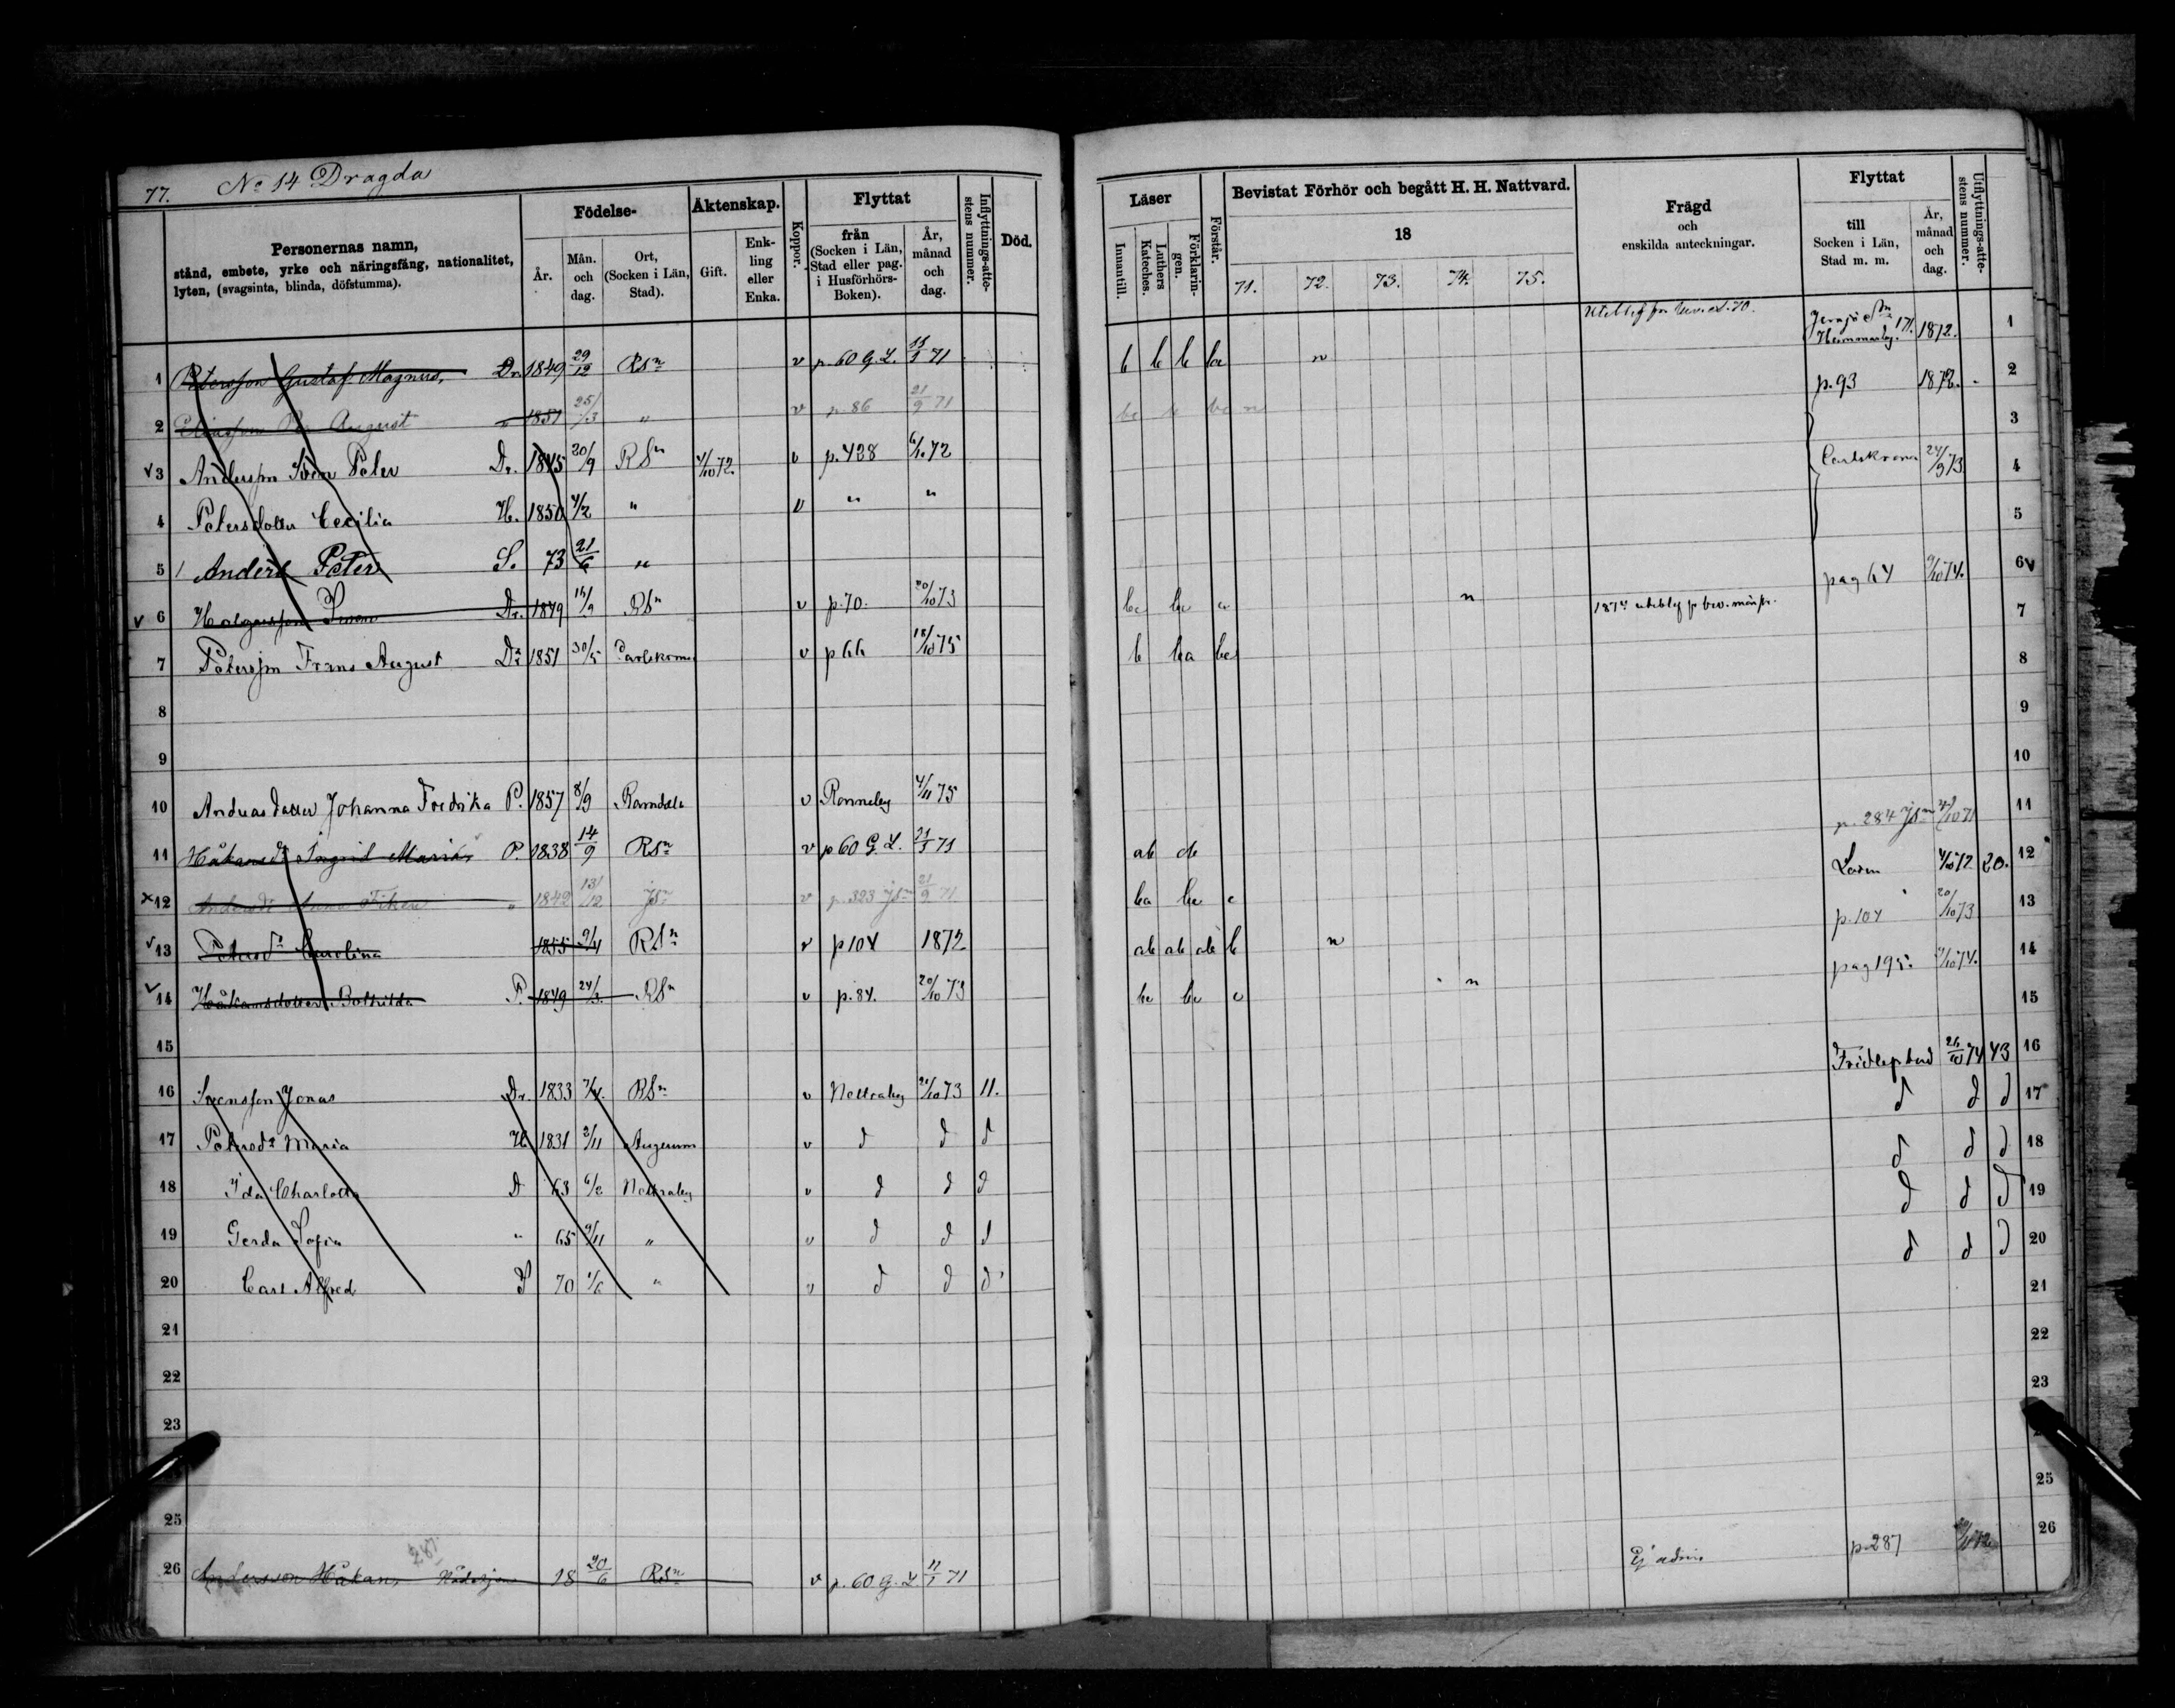 77. No 14 Dragda
Personernas namn,
stånd, embete, yrke och näringsfång, nationalitet,
lyten, (svagsinta, blinda, döfstumma).
Födelse-
År.
Mån. och dag.
Ort, (Socken i Län, Stad).
Äktenskap.
Gift.
Enk-ling eller Enka.
Koppor.
Flyttat
från (Socken i Län, Stad eller pag. i Husförhörs-Boken).
År, månad och dag.
Inflyttnings-atte-stens nummer.
Död.
1 Petersson Gustaf Magnus, Dr. 1849 29/12 RSn v p. 60 G. L. 11/1 71
2 August " 1851 25/3 " v p. 86 21/9 71
v 3 Andersson Sven Peter Dr. 1845 20/9 RSn 4/10 72 v p. 428 6/10 72
4 Petersdotter Cecilia H. 1850 4/2 " v " "
5 Anders Peter S. 73 21/6 "
v 6 Holgersson Sven Dr. 1849 RSn v p. 70. 20/10 73
7 Petersson Frans August Dr 1851 30/5 Carlskrona v p 66 18/10 75
8
9
10 Andreasdotter Johanna Fredrika P. 1857 8/9 Ramdala v Ronneby 4/11 75
11 Håkansdr Ingrid Maria P. 1838 14/9 RSn v p 60 G. L. 21/1 71
x 12 " 1842 13/12 JSn v p. 323 JSn 21/9 71
v 13 Petersdr Carolina 1855 9/4 RSn v p 104 1872
v 14 Håkansdotter Bothilda P. 1849 24/3 RSn v p. 84. 20/10 73
15
16 Svensson Jonas Dr. 1833 7/4. RSn v Nettraby 21/10 73 11.
17 Petersdr Maria H 1831 2/11 Augerum v d d d
18 Ida Charlotta D 63 6/2 Nettraby v d d d
19 Gerda Sofia " 65 9/11 " v d d d
20 Carl Alfred S 70 1/6 " v d d d
21
22
23
25
287
26 Andersson Håkan, 18 20/6 RSn v p. 60. G. L 11/1 71
Läser
Innantill.
Luthers Kateches.
Förklarin-gen.
Förstår.
Bevistat Förhör och begått H. H. Nattvard.
18
71. 72. 73. 74. 75.
Frägd
och
enskilda anteckningar.
Flyttat
till
Socken i Län,
Stad m. m.
År, månad och dag.
Utflyttnings-atte-stens nummer.
b b b ba n 171. 1872. 1
p. 93 1872. 2
3
Carlskrona 24/9 73 4
5
pag 64 9/10 74. 6 v
n 7
b ba 8
9
10
p. 284 JSn 71 11
ab ab 4/10 72 20. 12
p. 104 20/10 73 13
ab ab ab b n pag 195. 9/10 74. 14
n 15
Fridlefstad 26/10 74 43 16
d d d 17
d d d 18
d d d 19
d d d 20
21
22
23
25
p. 287 26